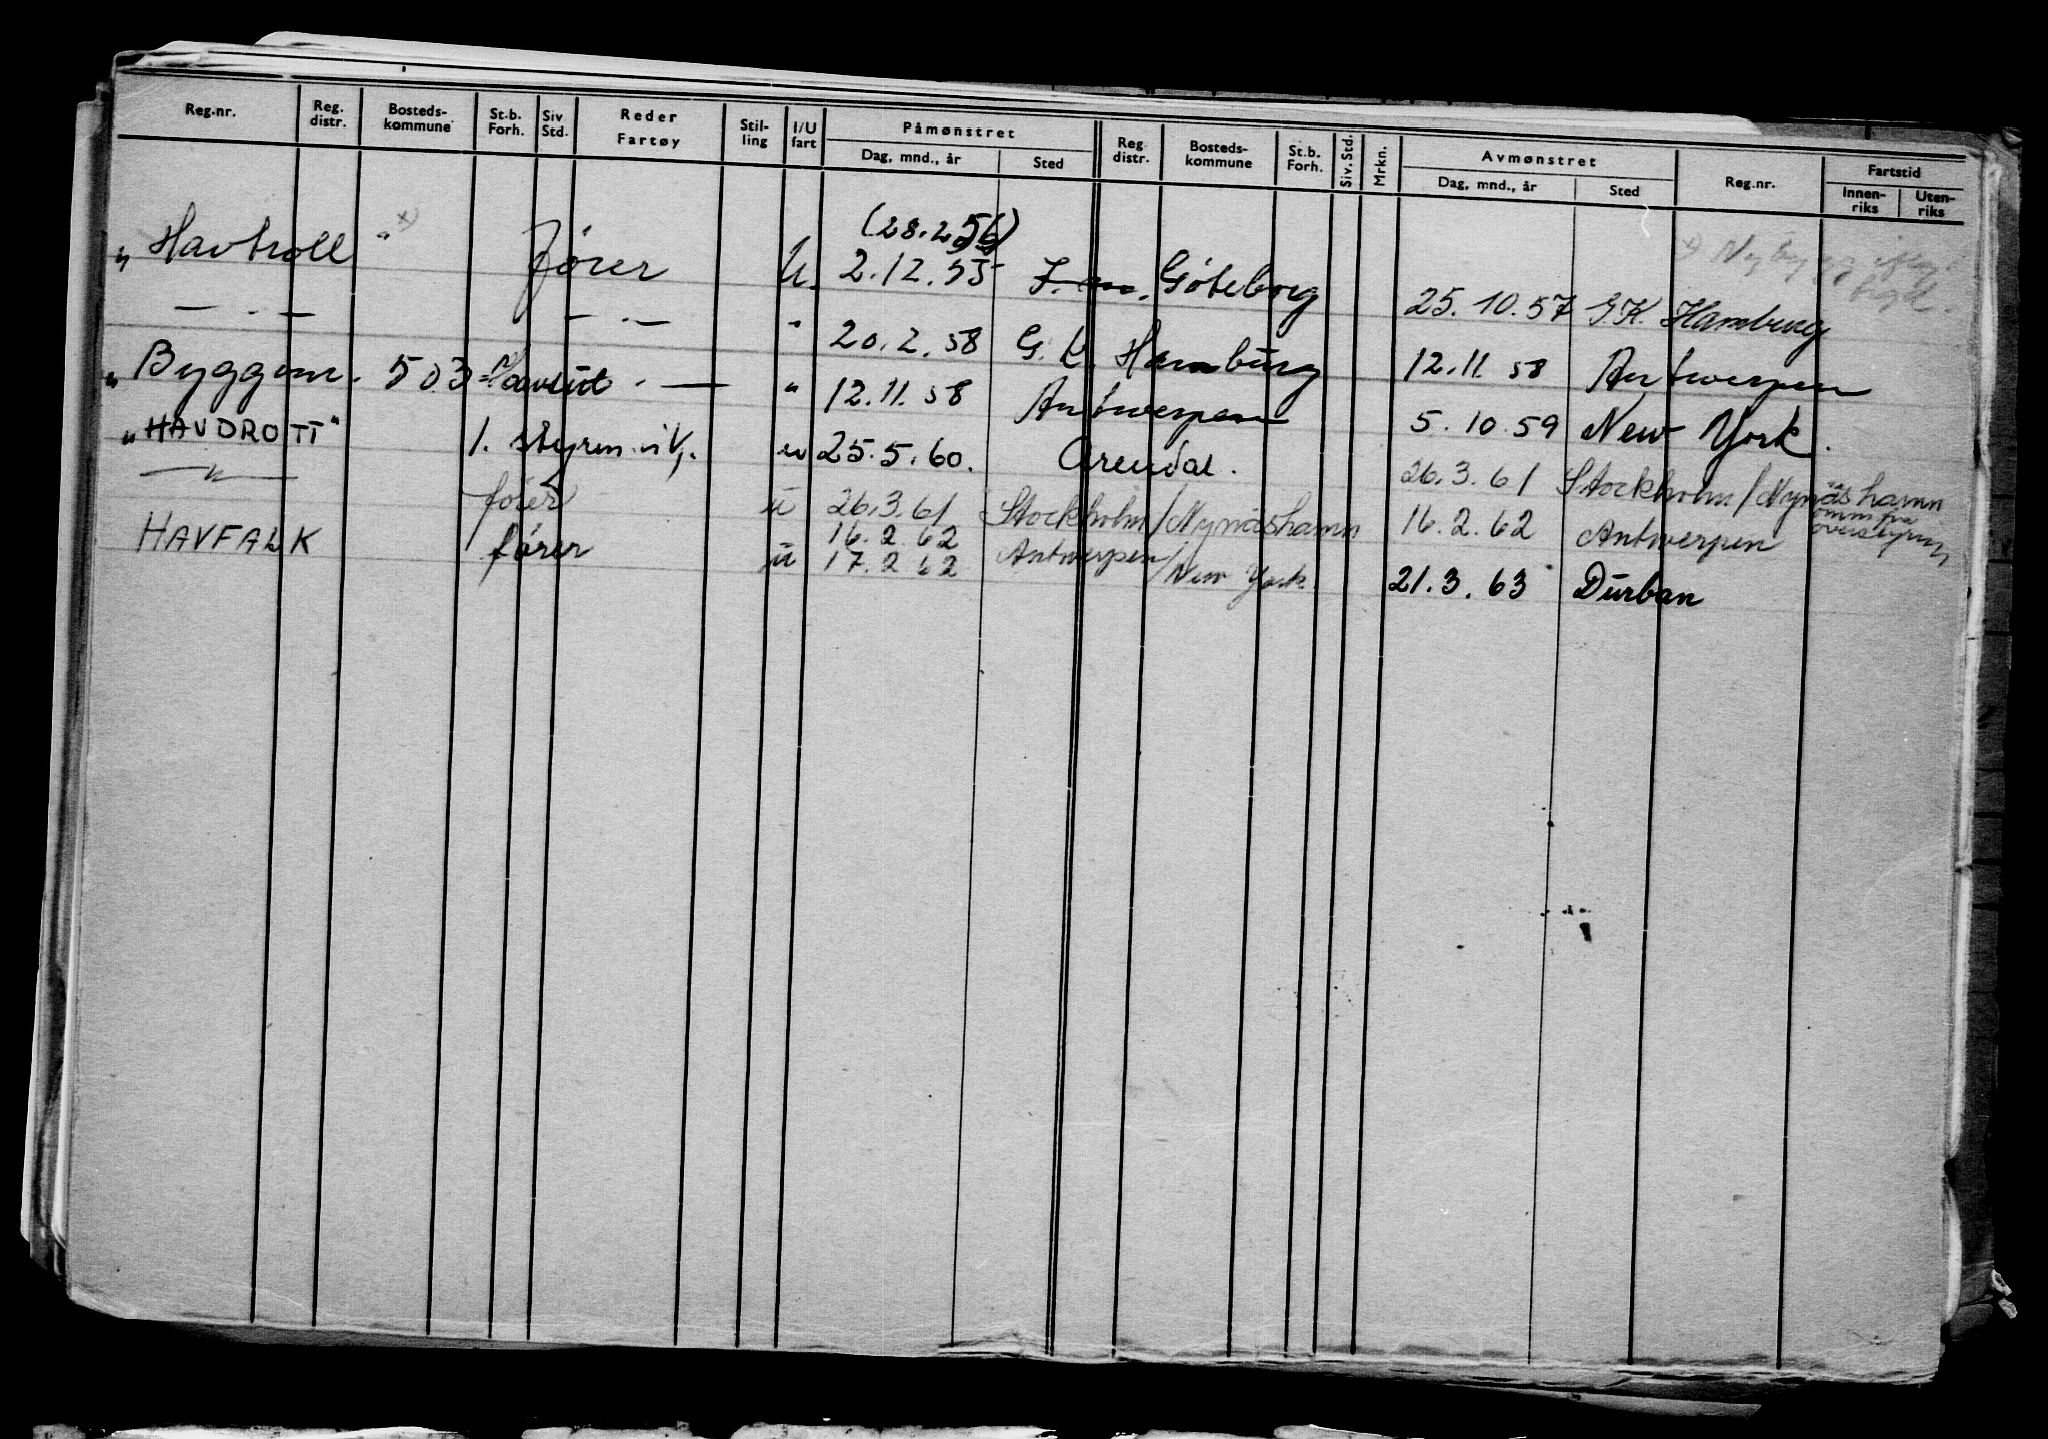 Reg.nr. Reg. distr. Bosteds-kommune St.b. Forh. Siv Std. Reder Fartøy Stil-ling I/U fart Påmønstret Dag, mnd., år Sted Reg distr. Bosteds-kommune St.b. Forh. Siv. Std. Mrkn. Avmønstret Dag, mnd., år Sted Reg.nr. Fartstid Innen-riks Uten-riks
(28.2.56)
„ Havtroll " x) fører U. 2.12.55 Göteborg 25.10.57 G.K. Hamburg
— " — — " — " 20.2.58 G.K. Hamburg 12.11.58 Antwerpen
„ Byggenr. 503 = " Havsul — " — " 12.11.58 Antwerpen 5.10.59 New York.
„HAVDROTT" 1. styrm. u 25.5.60. Arendal. 26.3.61 Stockholm/Nynäshamn
— " — fører u 26.3.61 Stockholm/Nynäshamn 16.2.62 Antwerpen
16.2.62
HAVFALK fører u 17.2.62 Antwerpen/New York 21.3.63 Durban